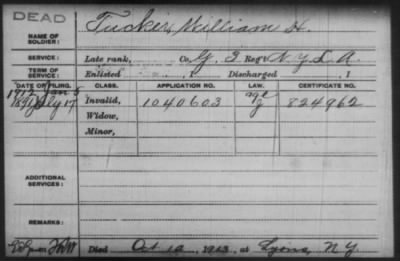 DEAD
NAME OF SOLDIER: Tucker, William H.
SERVICE: Late rank, Co. G, 3 Reg't N.Y.L.A.
TERM OF SERVICE: Enlisted , 1 Discharged , 1
DATE OF FILING. CLASS. APPLICATION NO. LAW. CERTIFICATE NO.
1912 Jan 5 age
1891 July 17 Invalid, 1040603 824962
Widow,
Minor,
ADDITIONAL SERVICES:
REMARKS:
Died Oct 12, 1913, at Lyons, N Y